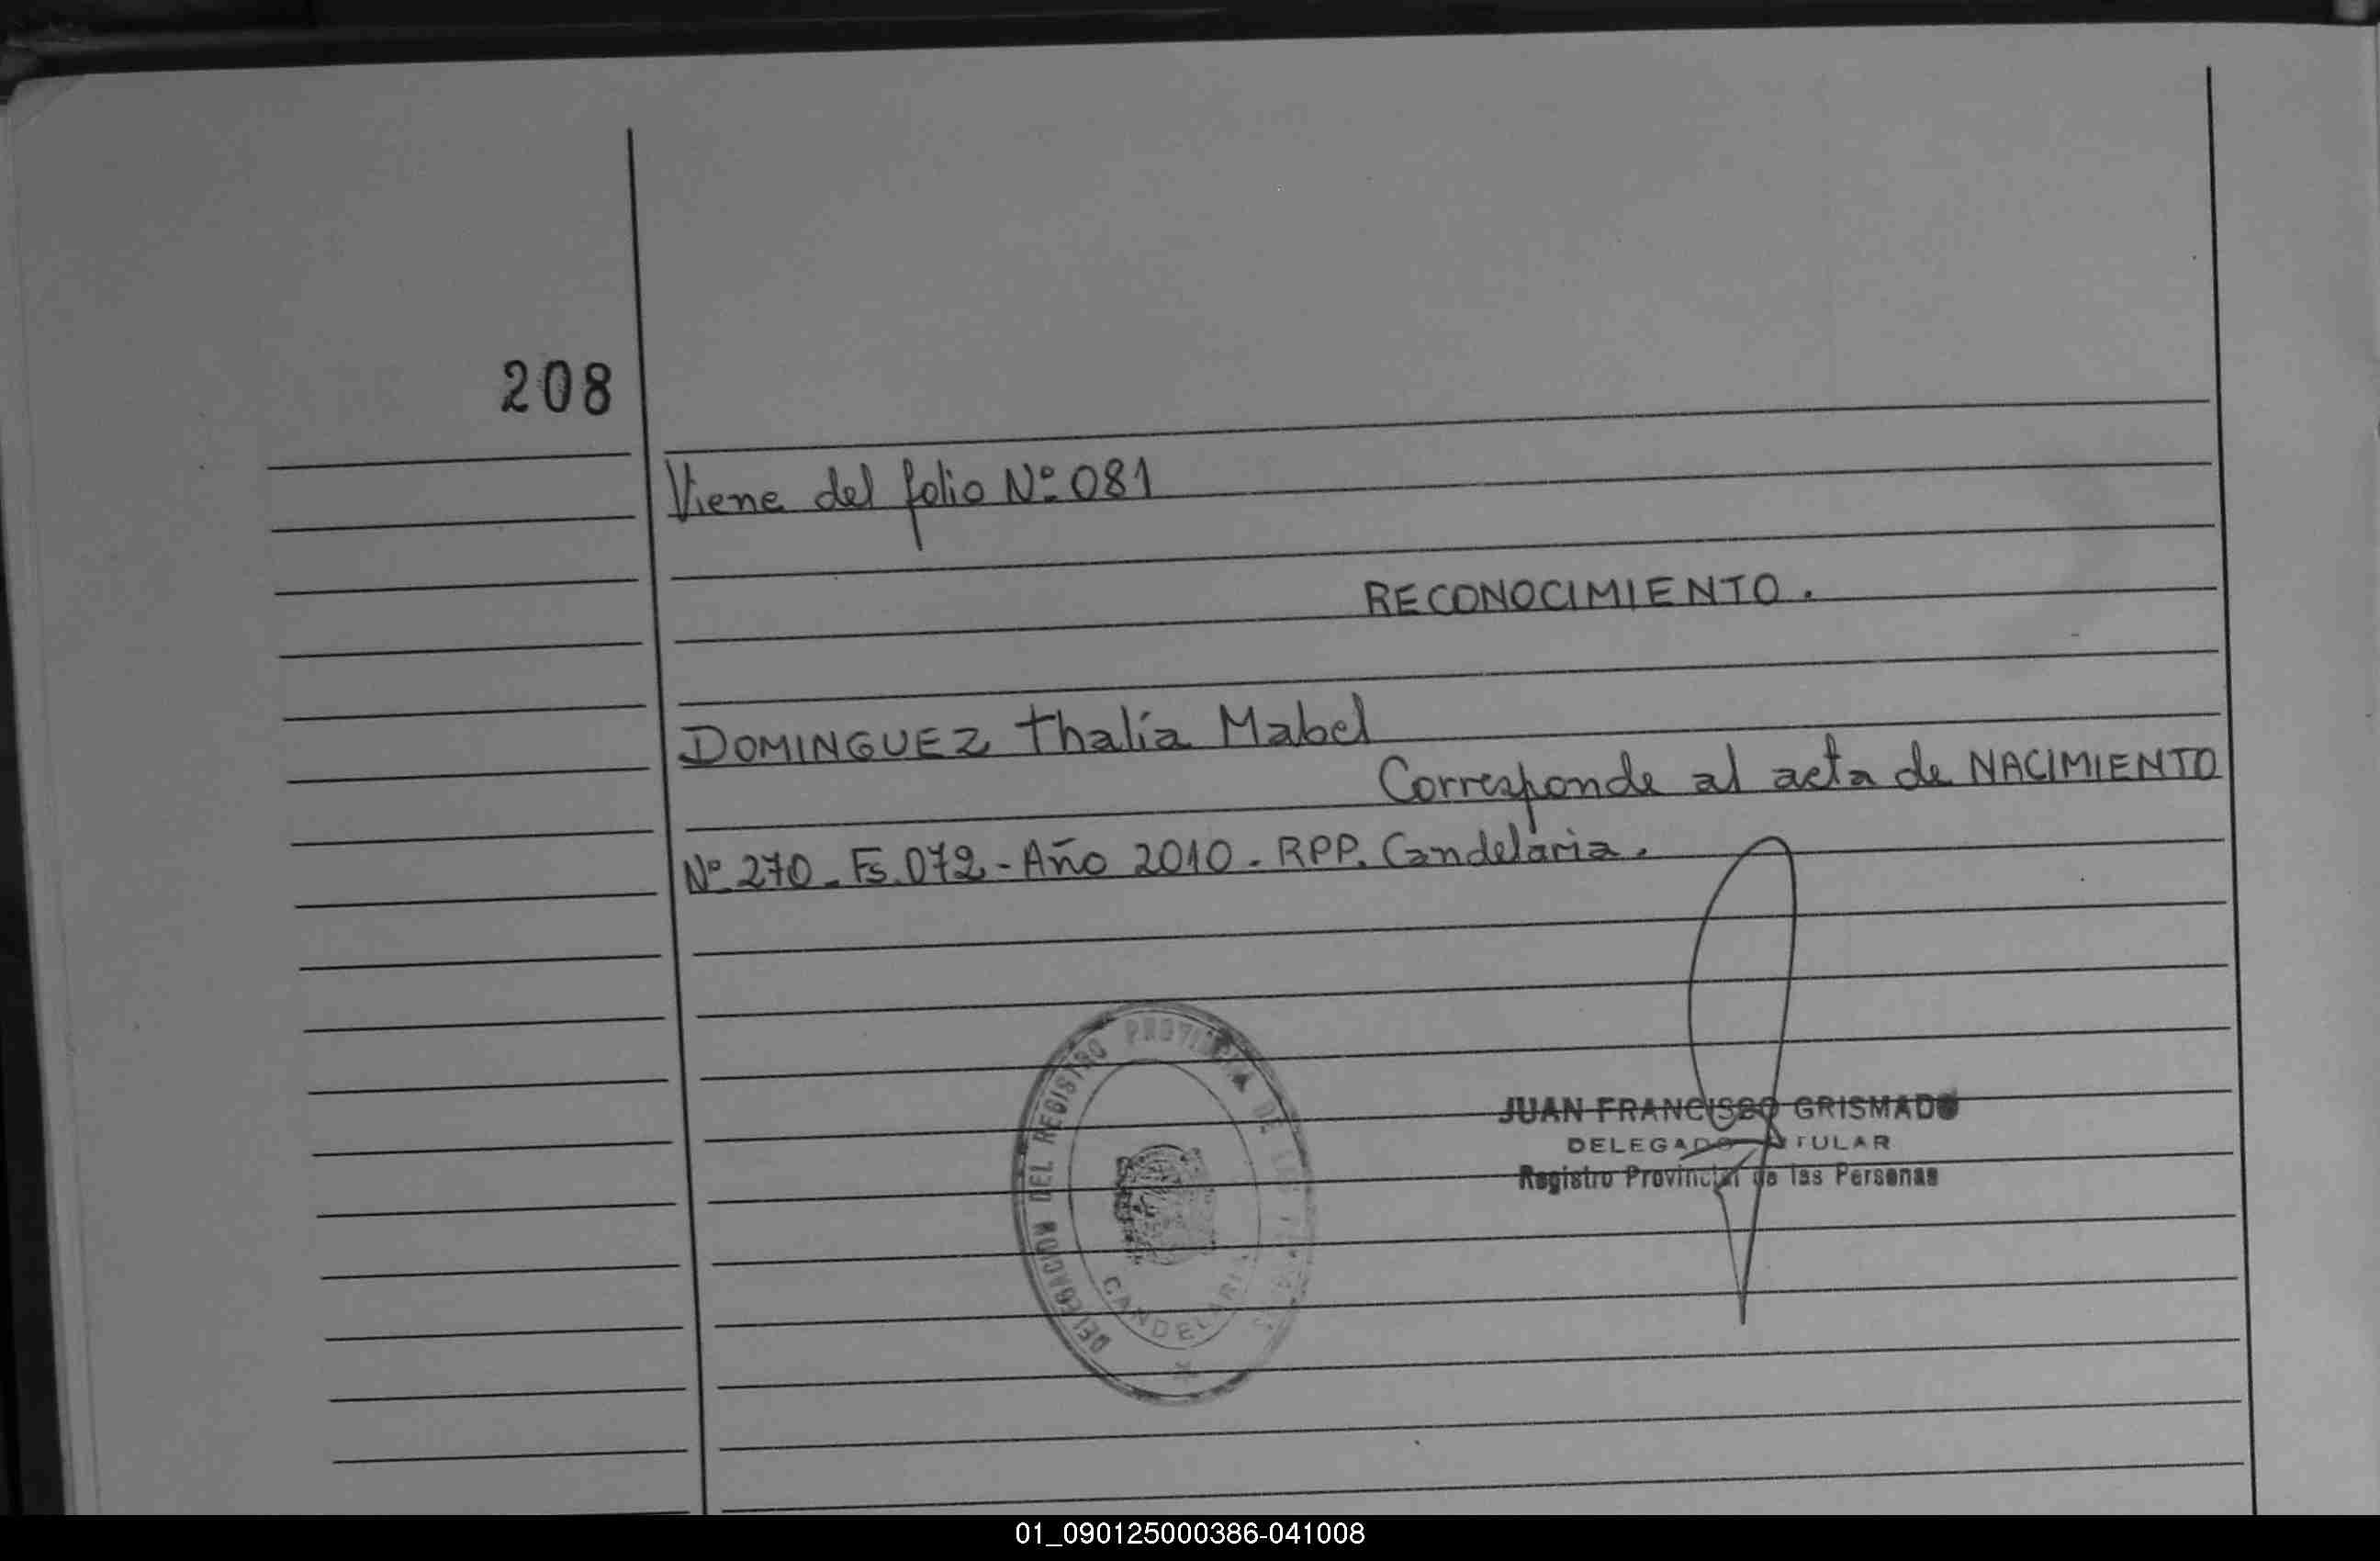 208
Viene del folio Nº 081
RECONOCIMIENTO.
DOMINGUEZ Thalía Mabel
Corresponde al acta de NACIMIENTO
Nº 270 - Fs. 072 - Año 2010 - RPP. Candelaria.
DELEGACION DEL REGISTRO PROVINCIAL DE LAS PERSONAS
CANDELARIA
JUAN FRANCISCO GRISMADO
DELEGADO TITULAR
Registro Provincial de las Personas
01_090125000386-041008